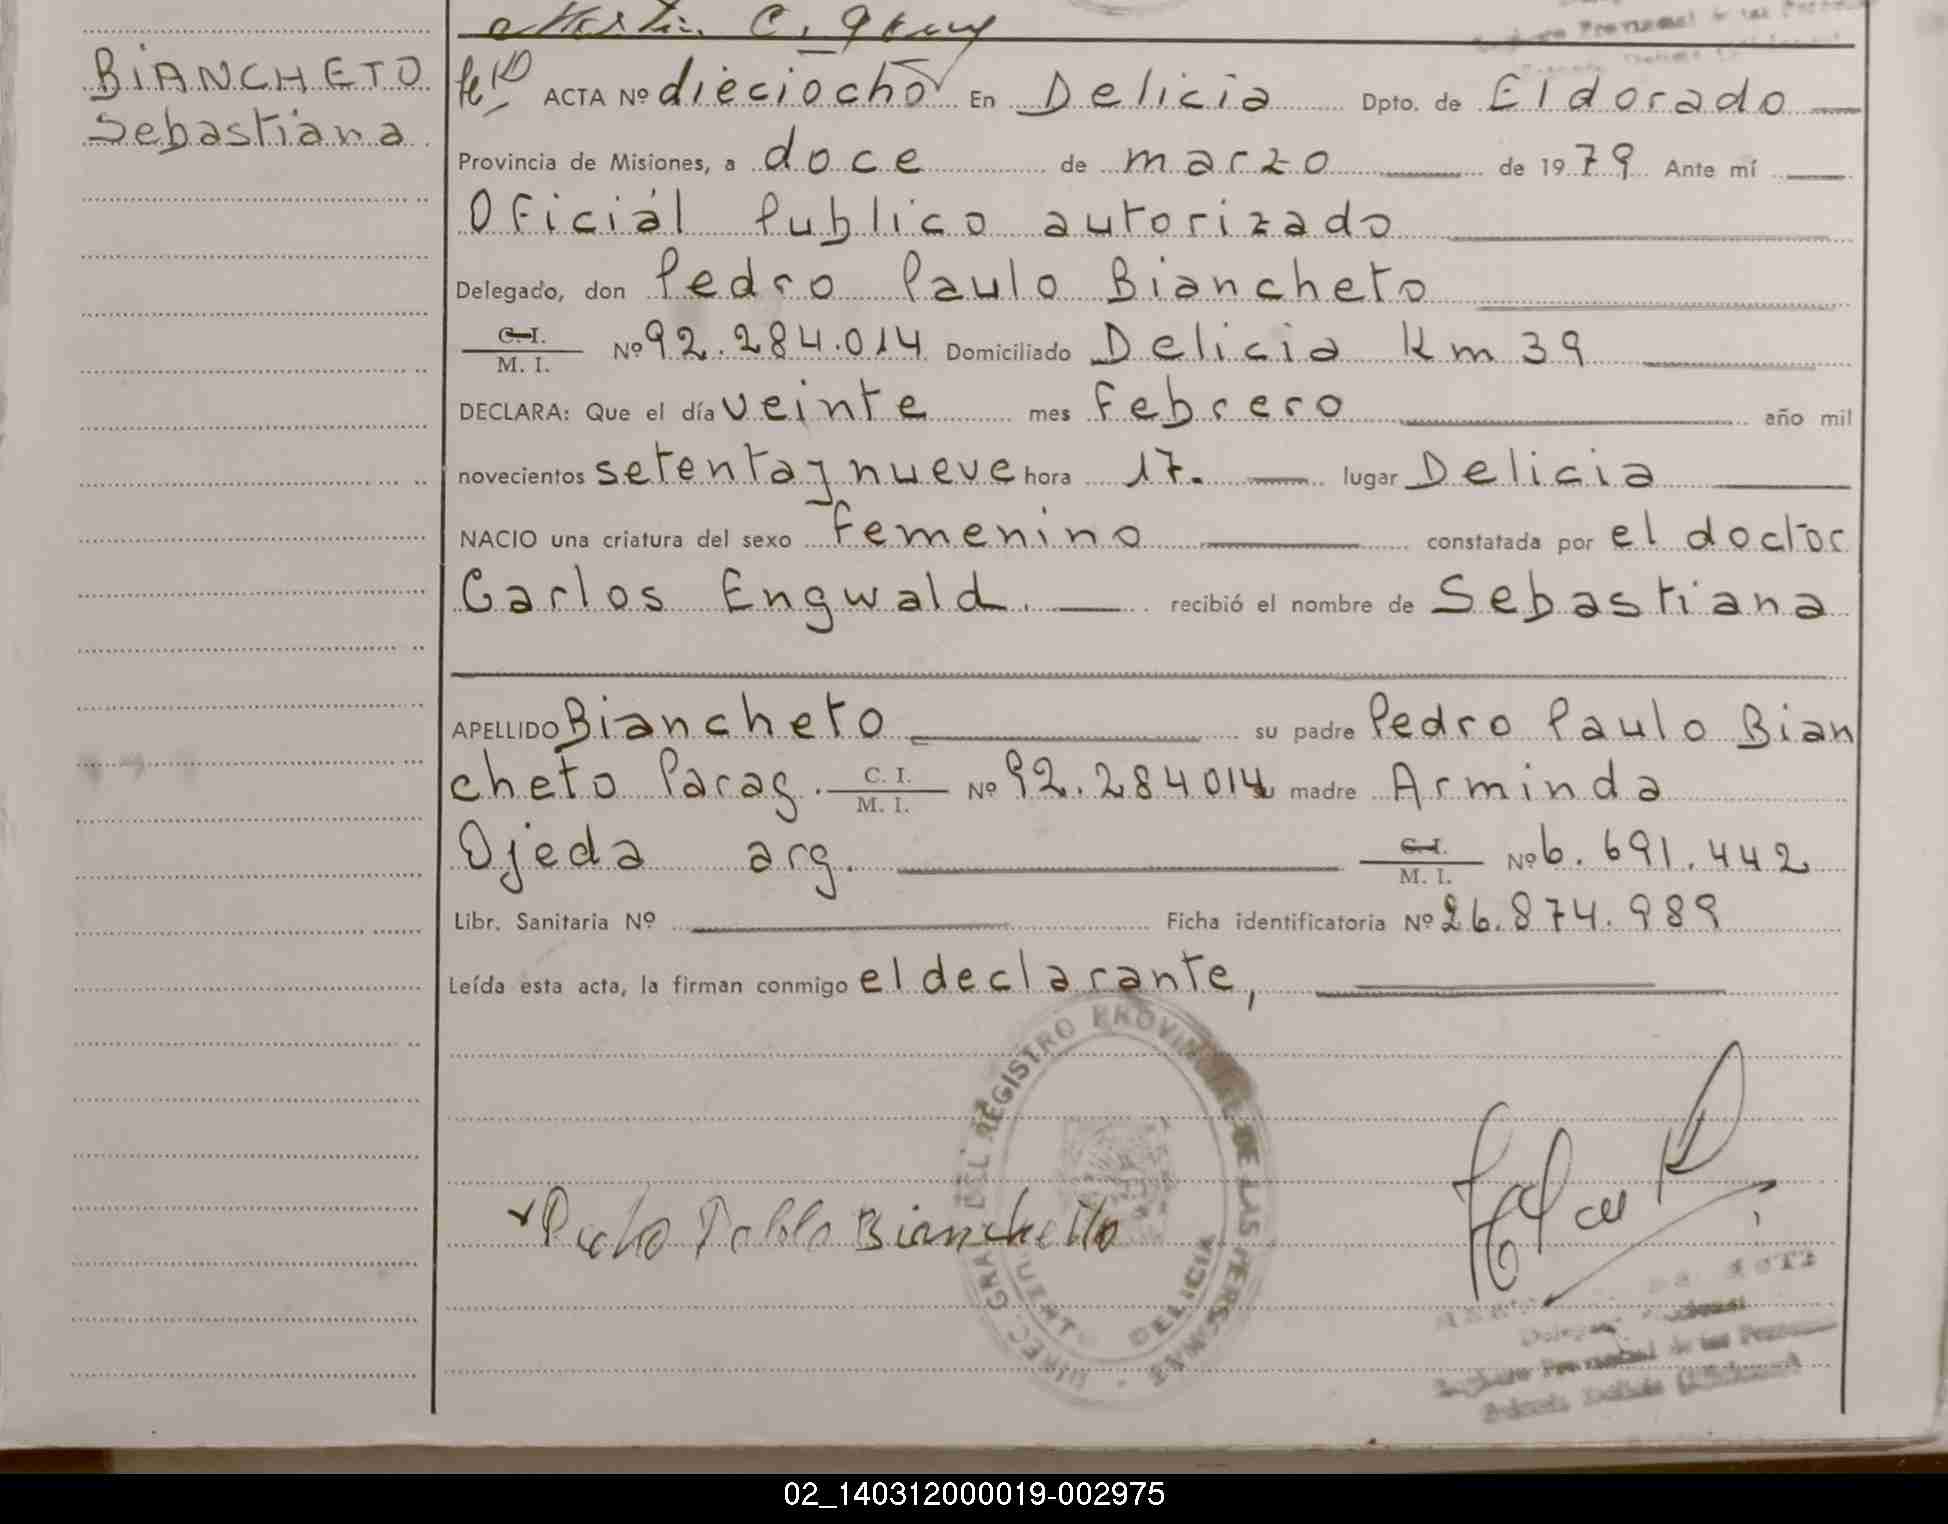 BIANCHETO
Sebastiana
ACTA Nº dieciocho En Delicia Dpto. de Eldorado
Provincia de Misiones, a doce de marzo de 1979 Ante mí
Oficial Publico autorizado
Delegado, don Pedro Paulo Biancheto
C. I.
M. I. Nº 92.284.014 Domiciliado Delicia Km 39
DECLARA: Que el día veinte mes Febrero año mil
novecientos setenta y nueve hora 17. lugar Delicia
NACIO una criatura del sexo Femenino constatada por el doctor
Carlos Engwald. recibió el nombre de Sebastiana
APELLIDO Biancheto su padre Pedro Paulo Bian
cheto Parag. C. I.
M. I. Nº 92.284014 madre Arminda
Ojeda arg. C. I.
M. I. Nº 6.691.442
Libr. Sanitaria Nº Ficha identificatoria Nº 26.874.989
Leída esta acta, la firman conmigo el declarante,
DIREC. GRAL. DEL REGISTRO PROVINCIAL DE LAS PERSONAS
DELICIA
Pedro Pablo Bianchetto
02_140312000019-002975